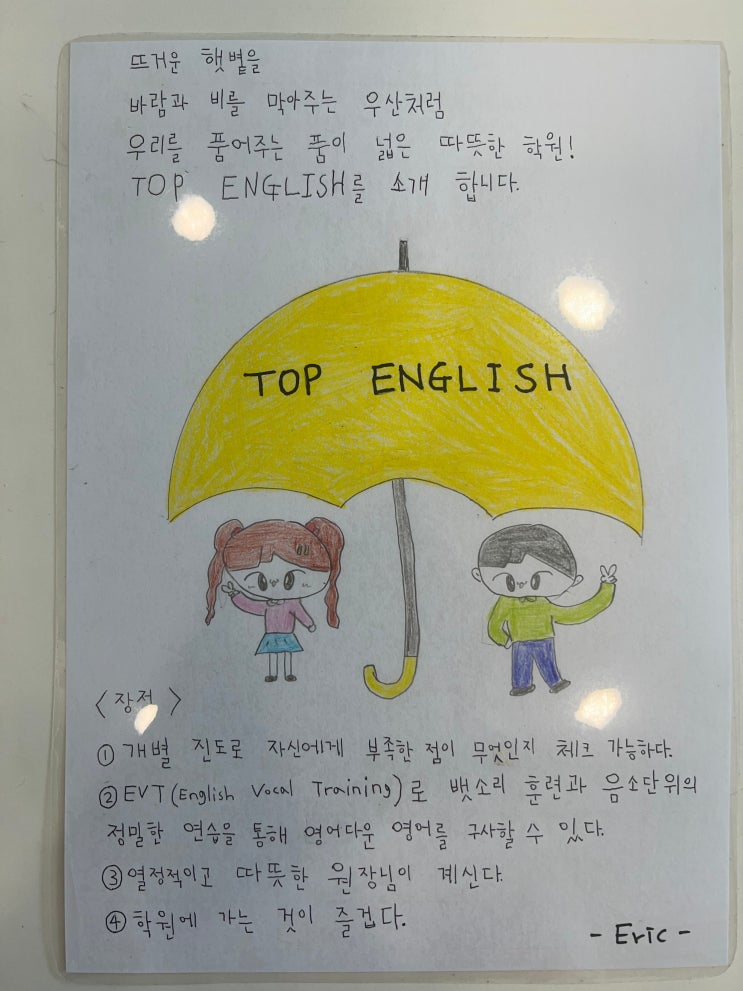 뜨거운 햇볕을
바람과 비를 막아주는 우산처럼
우리를 품어주는 품이 넓은 따뜻한 학원!
TOP ENGLISH를 소개 합니다.
TOP ENGLISH
<장점>
① 개별 진도로 자신에게 부족한 점이 무엇인지 체크 가능하다.
② EVT(English Vocal Training)로 뱃소리 훈련과 음소단위의
정밀한 연습을 통해 영어다운 영어를 구사할 수 있다.
③ 열정적이고 따뜻한 원장님이 계신다.
④ 학원에 가는 것이 즐겁다.
- Eric -